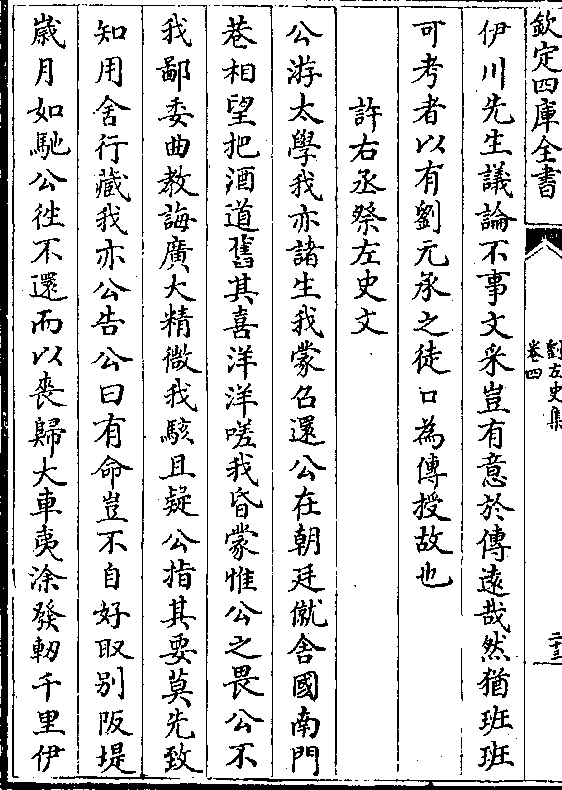 欽定四庫全書
劉左史集
卷四
二十三
伊川先生議論不事文采豈有意於傳逺哉然猶班班
可考者以有劉元承之徒口為傳授故也
許右丞祭左史文
公游太學我亦諸生我蒙召還公在朝廷僦舍國南門
巷相望把酒道舊其喜洋洋嗟我昏蒙惟公之畏公不
我鄙委曲教誨廣大精微我駭且疑公指其要莫先致
知用舍行藏我亦公告公曰有命豈不自好取别阪堤
嵗月如馳公徃不還而以喪歸大車夷涂發軔千里伊